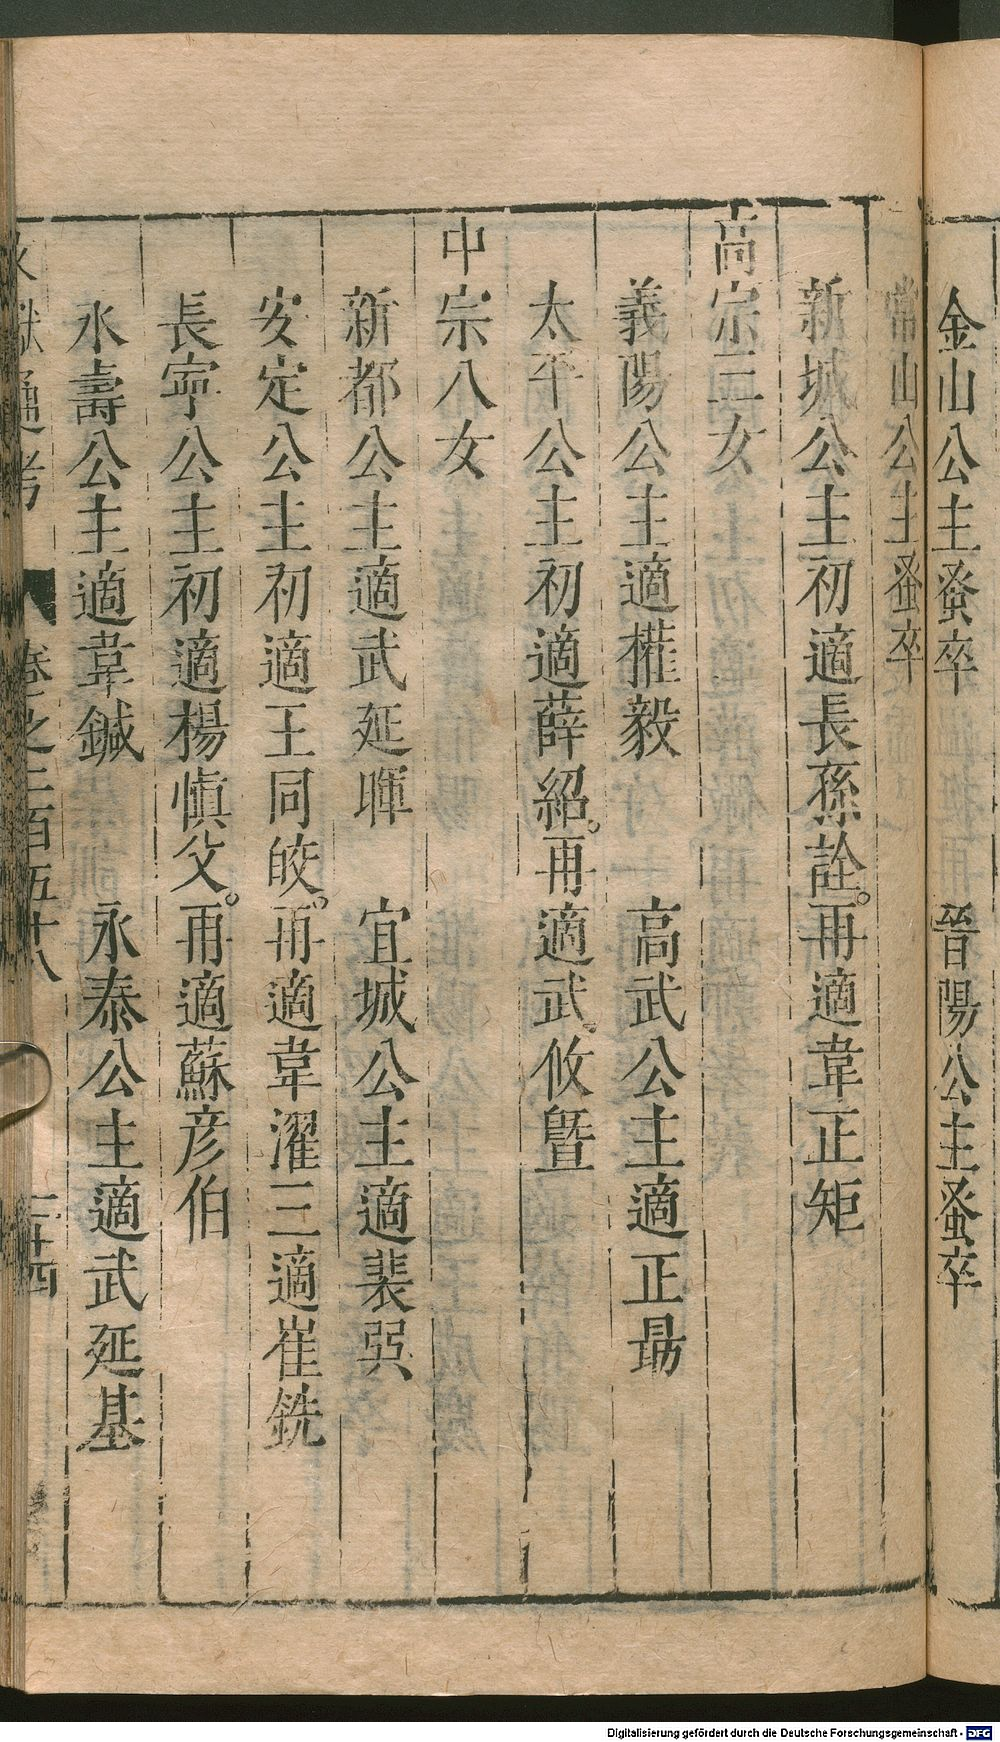 金山公主蚤卒　晉陽公主蚤卒
常山公主蚤卒
新城公主初適長孫詮。再適韋正矩
高宗三女
義陽公主適權毅　高武公主適正勗
太平公主初適薛紹。再適武攸暨
中宗八女
新都公主適武延暉　宜城公主適裴巽
安定公主初適王同皎。再適韋濯三適崔銑
長寧公主初適楊慎父。再適蘇彦伯
永壽公主適韋鍼　永泰公主適武延基
文獻通考　卷之二百五十八　二十四
Digitalisierung gefördert durch die Deutsche Forschungsgemeinschaft - DFG